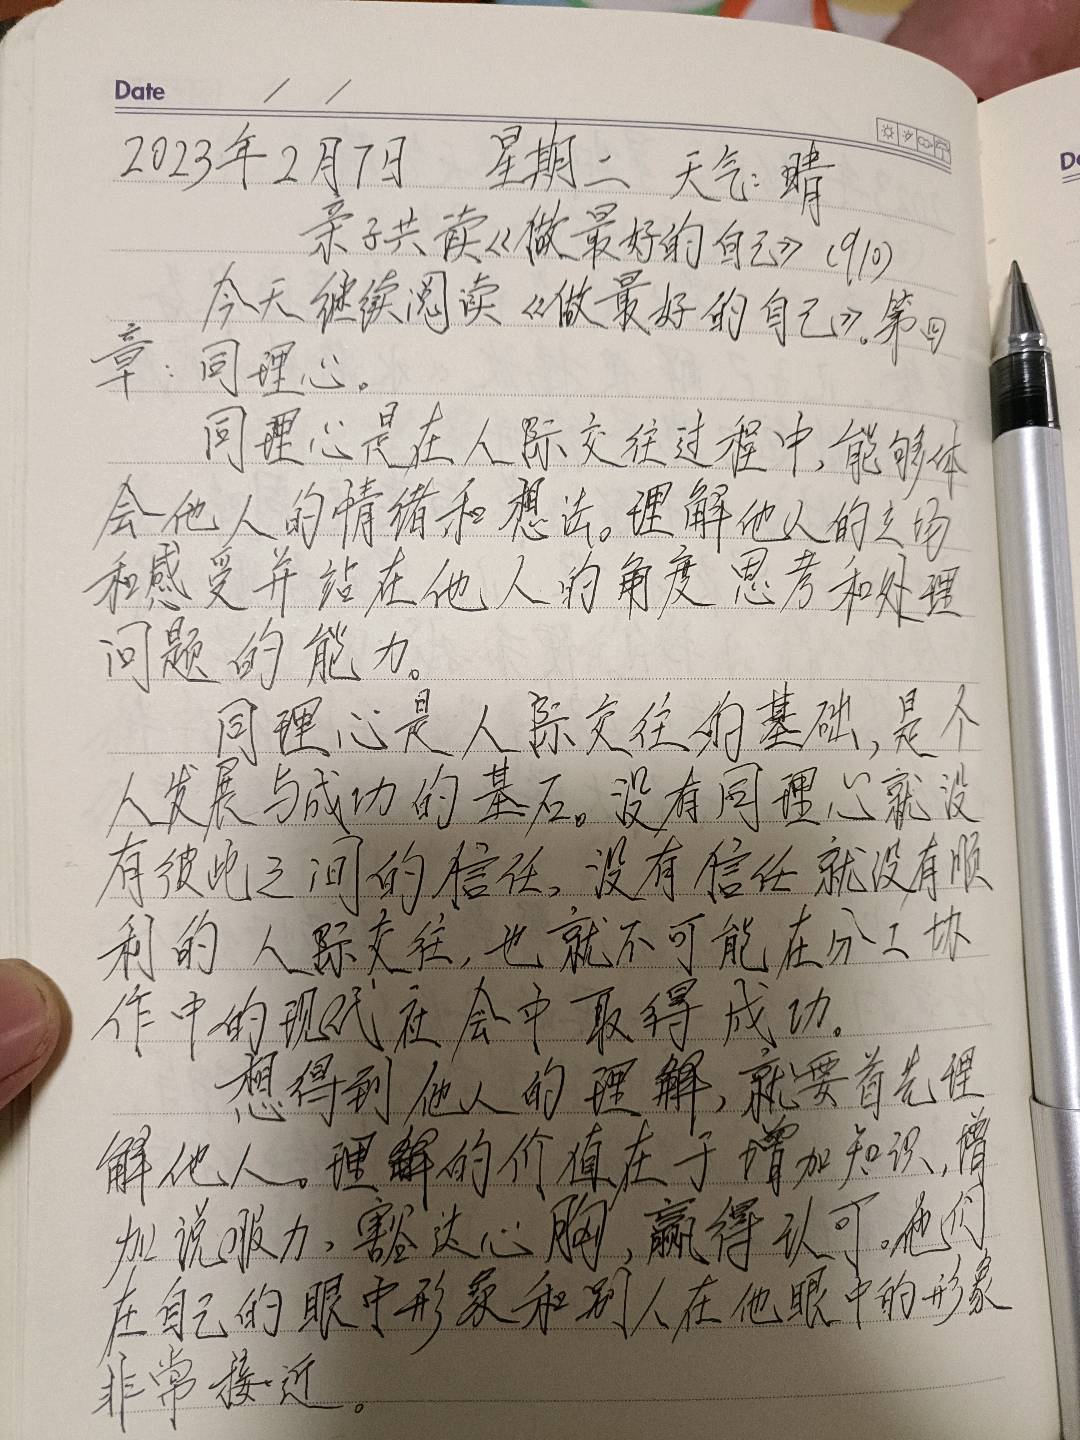 Date / /
2023年2月7日 星期二 天气:晴
亲子共读《做最好的自己》(910)
今天继续阅读《做最好的自己》。第四
章:同理心。
同理心是在人际交往过程中,能够体
会他人的情绪和想法。理解他人的立场
和感受并站在他人的角度思考和处理
问题的能力。
同理心是人际交往的基础,是个
人发展与成功的基石。没有同理心就没
有彼此之间的信任。没有信任就没有顺
利的人际交往,也就不可能在分工协
作中的现代社会中取得成功。
想得到他人的理解,就要首先理
解他人。理解的价值在于增加知识,增
加说服力,豁达心胸,赢得认可。他们
在自己的眼中形象和别人在他眼中的形象
非常接近。